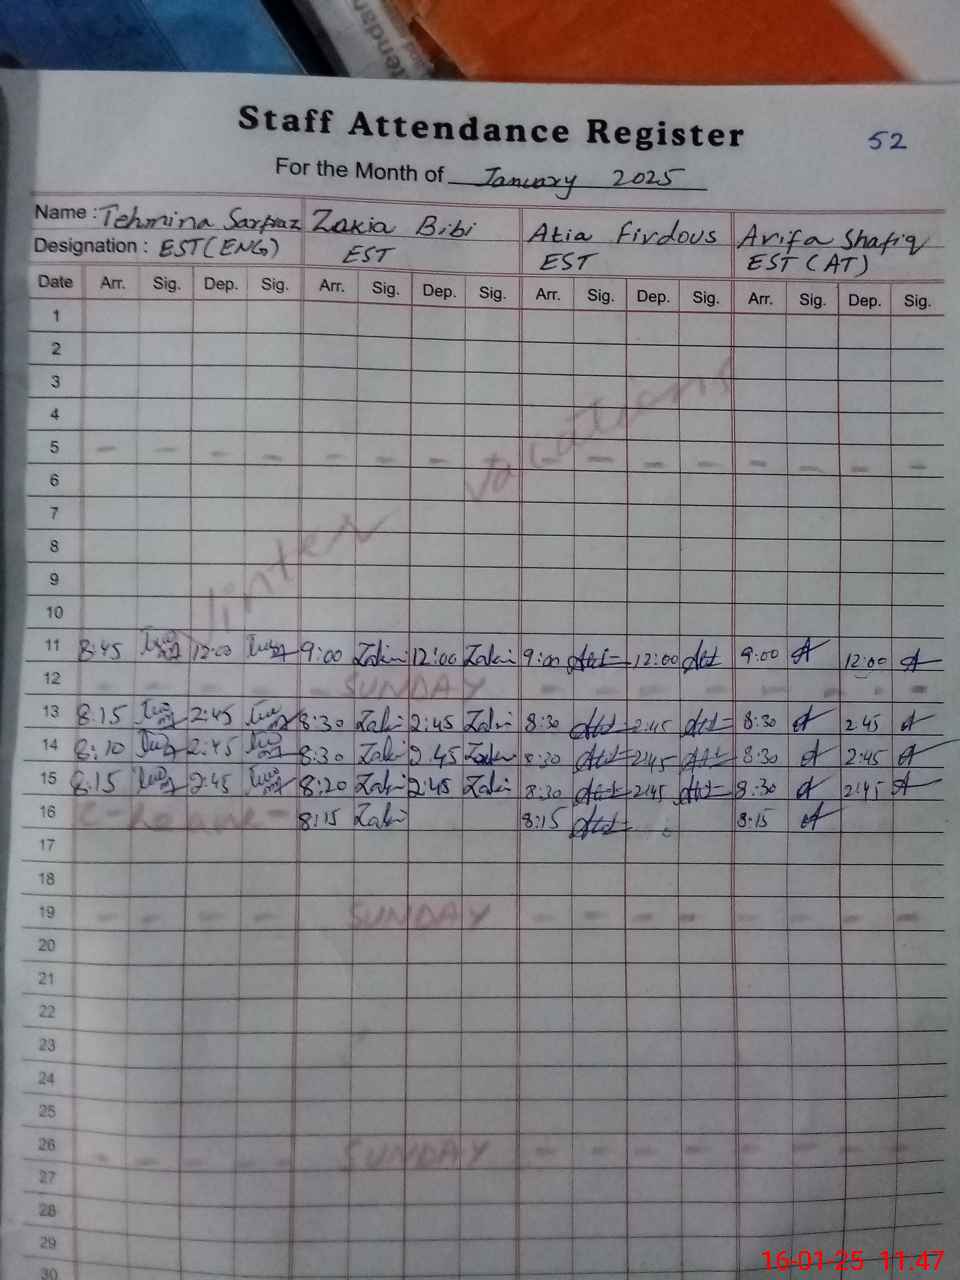 Staff Attendance Register
52
For the Month of January 2025
Name : Tehmina Sarfraz Zakia Bibi Atia Firdous Arifa Shafiq
Designation : EST (ENG) EST EST EST (AT)
Date Arr. Sig. Dep. Sig. Arr. Sig. Dep. Sig. Arr. Sig. Dep. Sig. Arr. Sig. Dep. Sig.
1
2
3
4
5
6
7
8
9
10
Winter Vacations
11 8:45 12:00 9:00 Zaki 12:00 Zaki 9:00 12:00 9:00 12:00
12 SUNDAY
13 8:15 2:45 8:30 Zaki 2:45 Zaki 8:30 2:45 8:30 2:45
14 8:10 2:45 8:30 Zaki 2:45 Zaki 8:30 2:45 8:30 2:45
15 8:15 2:45 8:20 Zaki 2:45 Zaki 8:30 2:45 8:30 2:45
16 8:15 Zaki 8:15 8:15
17
18
19 SUNDAY
20
21
22
23
24
25
26 SUNDAY
27
28
29
30
16-01-25 11:47